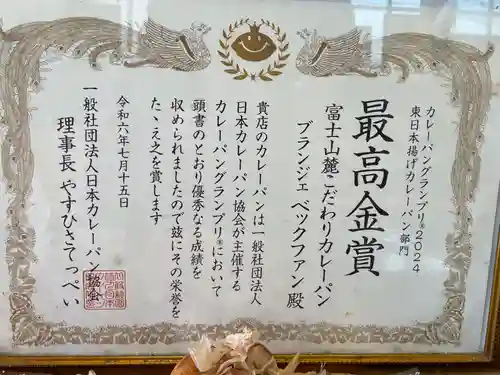 カレーパングランプリ®2024
東日本揚げカレーパン部門
最高金賞
富士山麓こだわりカレーパン
ブランジェ ベックファン殿
貴店のカレーパンは一般社団法人
日本カレーパン協会が主催する
カレーパングランプリ®において
頭書のとおり優秀なる成績を
収められましたので茲にその栄誉を
たゝえ之を賞します
令和六年七月十五日
一般社団法人日本カレーパン協会
理事長 やすひさてっぺい